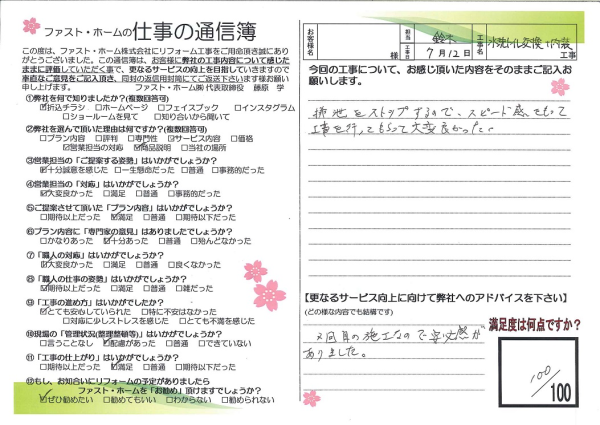 ファスト・ホームの仕事の通信簿
この度は、ファスト・ホーム株式会社にリフォーム工事をご用命頂き誠にあり
がとうございました。この通信簿は、お客様に弊社の工事内容について感じた
ままに評価していただく事で、更なるサービスの向上を目指していきますので
率直なご意見をご記入頂き、同封の返信用封筒にてご返送下さいます様お願い
申し上げます。 ファスト・ホーム㈱代表取締役 藤原 学
①弊社を何で知りましたか?(複数回答可)
☑折込チラシ □ホームページ □フェイスブック □インスタグラム
□ショールームを見て □知り合いから聞いて
②弊社を選んで頂いた理由は何ですか?(複数回答可)
□プラン内容 □評判 □専門性 □サービス内容 □価格
☑営業担当の対応 ☑商品説明 □当社の場所
③営業担当の「ご提案する姿勢」はいかがでしょうか?
☑十分誠意を感じた □一生懸命だった □普通 □事務的だった
④営業担当の「対応」はいかがでしょうか?
☑大変良かった □満足 □普通 □事務的だった
⑤ご提案させて頂いた「プラン内容」はいかがでしょうか?
□期待以上だった ☑満足 □普通 □期待以下だった
⑥プラン内容に「専門家の意見」はありましたでしょうか?
□かなりあった ☑十分あった □普通 □殆んどなかった
⑦「職人の対応」はいかがでしょうか?
☑大変良かった □満足 □普通 □良くなかった
⑧「職人の仕事の姿勢」はいかがでしょうか?
☑期待以上だった □満足 □普通 □雑だった
⑨「工事の進め方」はいかがでしたか?
☑とても安心していられた □特に不安はなかった
□対応に少しストレスを感じた □とても不満を感じた
⑩現場の「管理状況(整理整頓等)」はいかがでしょうか?
□言うことなし ☑配慮があった □普通 □できていない
⑪「工事の仕上がり」はいかがでしょうか?
□期待以上だった ☑満足 □普通 □期待以下だった
⑫もし、お知合いにリフォームの予定がありましたら
ファスト・ホームを「お勧め」頂けますでしょうか?
☑ぜひ勧めたい □勧めてもいい □わからない □勧められない
お客様名 様
担当 鈴木
工事日 7月12日
工事名 水洗トイレ交換・内装 工事
今回の工事について、お感じ頂いた内容をそのままご記入お
願いします。
をストップするので、スピード感をもって
工事を行ってもらって大変良かった。
【更なるサービス向上に向けて弊社へのアドバイスを下さい】
(どの様な内容でも結構です)
2回目の施工なので安心感が
ありました。
満足度は何点ですか?
100/100